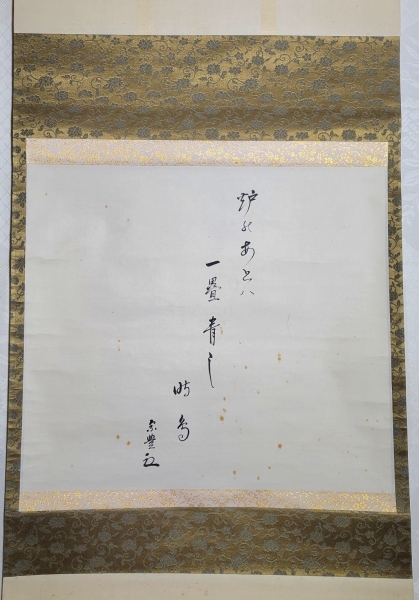 炉のあとハ
一疊青し
時鳥